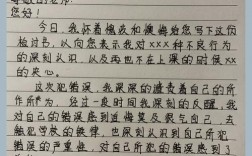 尊敬的老师:
您好!
今日,我怀着愧疚和懊悔给您写下这份
检讨书,以向您表示我对×××种不良行为
的深刻认识,以及再也不在上课的时候××
的决心。
这次犯错误,我深深的谴责着自己的所
作所为,经过一段时间我深刻的反醒,我
对自己的错误感到追悔莫及很气自己,去
触犯写校的铁律,也深刻认识到自己所犯
错误的严重性,对自己所犯的错误感到了